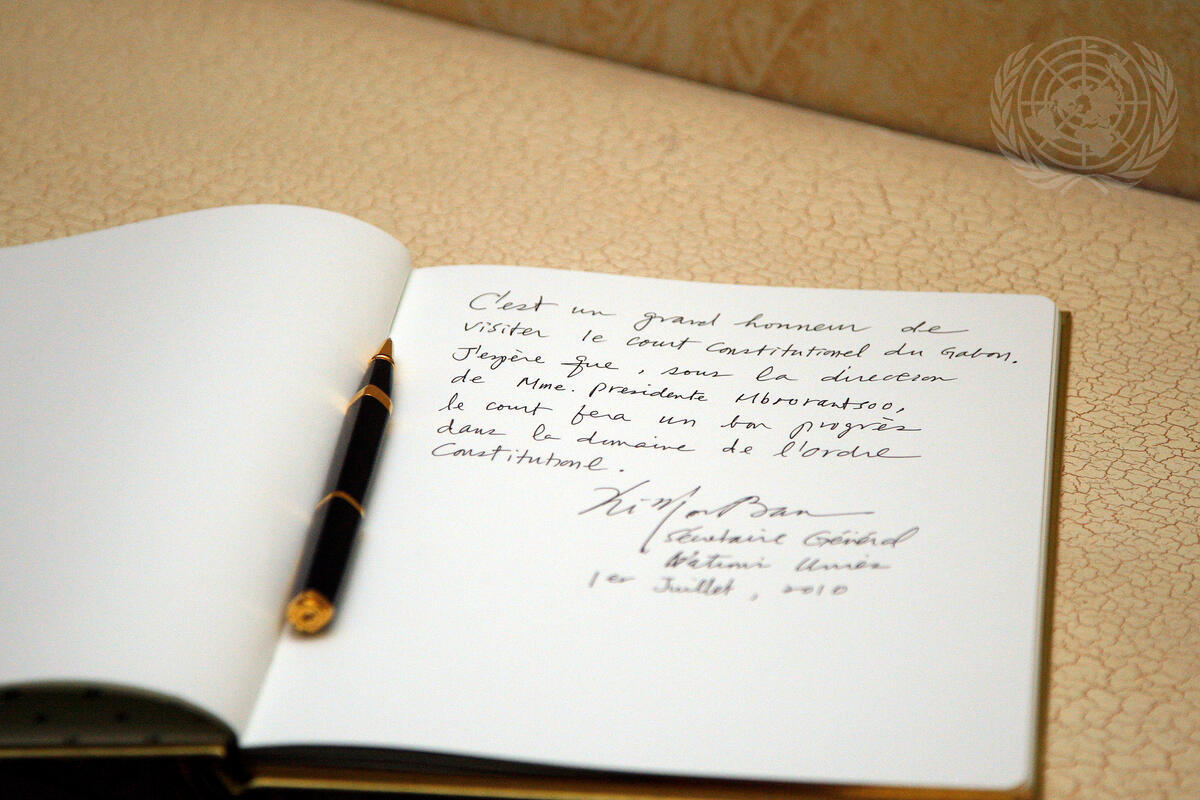 C'est un grand honneur de
visiter le court Constitutionel du Gabon.
J'espère que, sous la direction
de Mme. Presidente Mborantsoo,
le court fera un bon progrès
dans la domaine de l'ordre
Constitutionel.
Ki-Moon Ban
Sécretaire Général
Nations Unies
1er Juillet, 2010